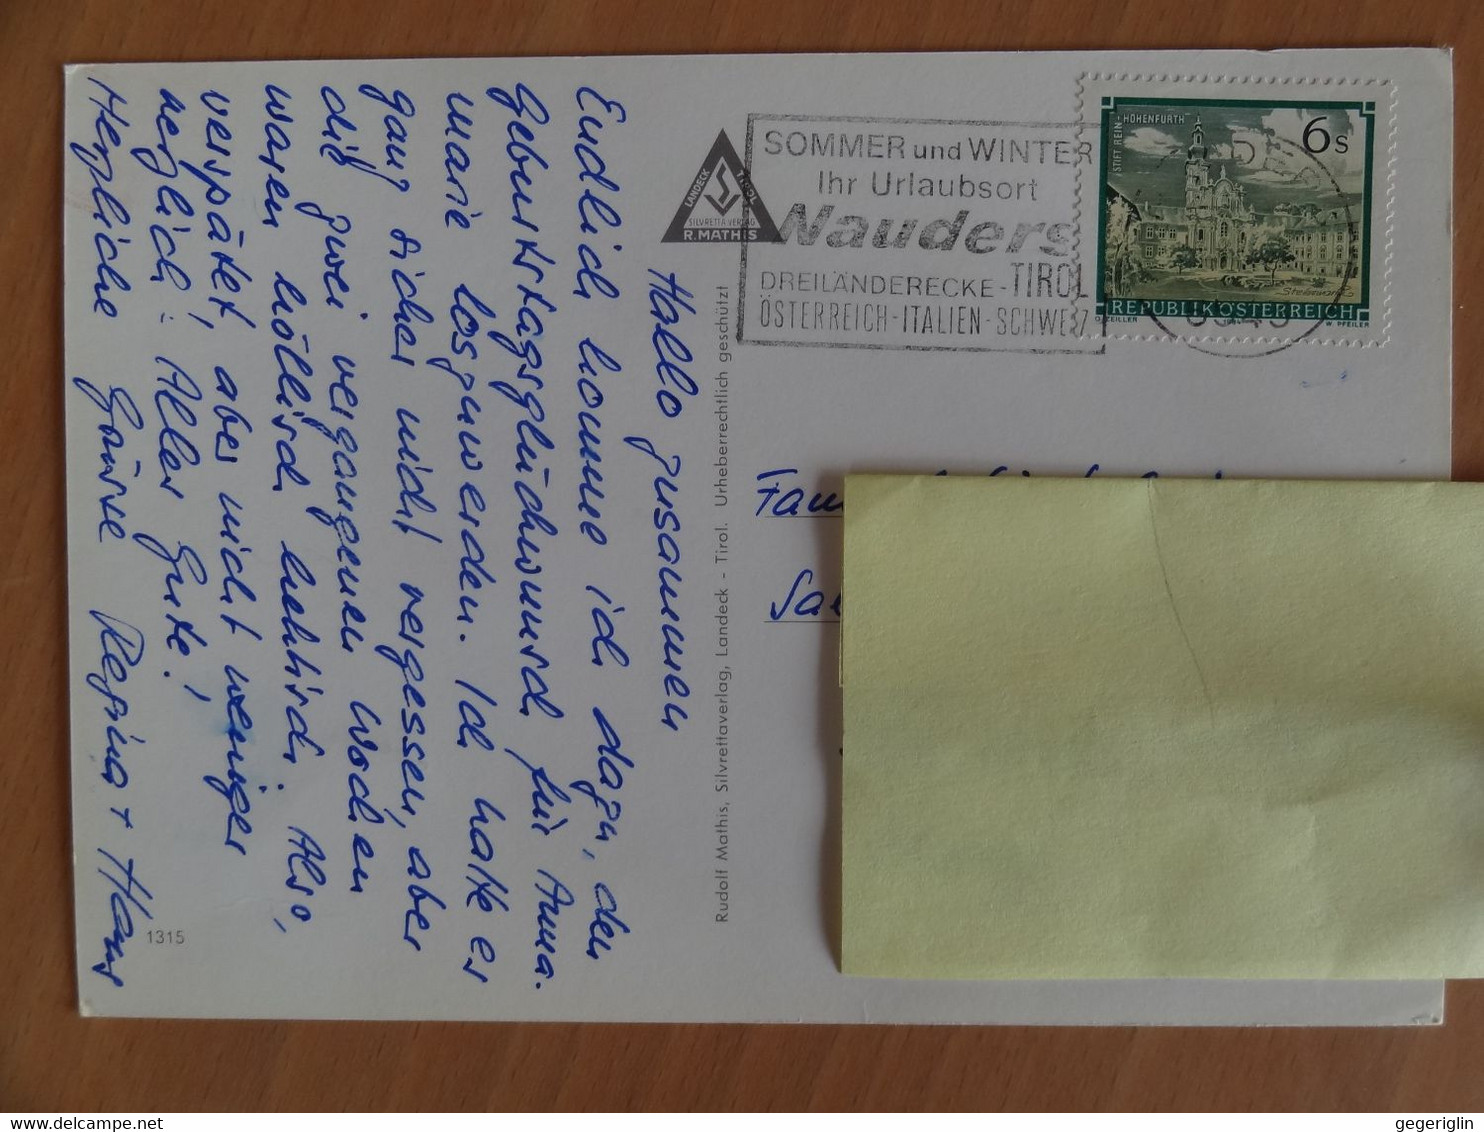 Hallo zusammen
Endlich komme ich dazu, den
Geburtstagsglückwunsch für Anna-
marie loszuwerden. Ich hatte es
ganz sicher nicht vergessen, aber
die zwei vergangenen Wochen
waren höllisch hektisch. Also,
verspätet, aber nicht weniger
herzlich: Alles Gute!
Herzliche Grüsse Regina + Hans
1315
LANDECK TIROL
SILVRETTA VERLAG
R. MATHIS
Rudolf Mathis, Silvrettaverlag, Landeck - Tirol. Urheberrechtlich geschützt
SOMMER und WINTER
Ihr Urlaubsort
Nauders
DREILÄNDERECKE - TIROL
ÖSTERREICH - ITALIEN - SCHWEIZ
STIFT REIN - HOHENFURTH
6 S
REPUBLIK ÖSTERREICH
O. ZEILLER
W. PFEILER
Fam